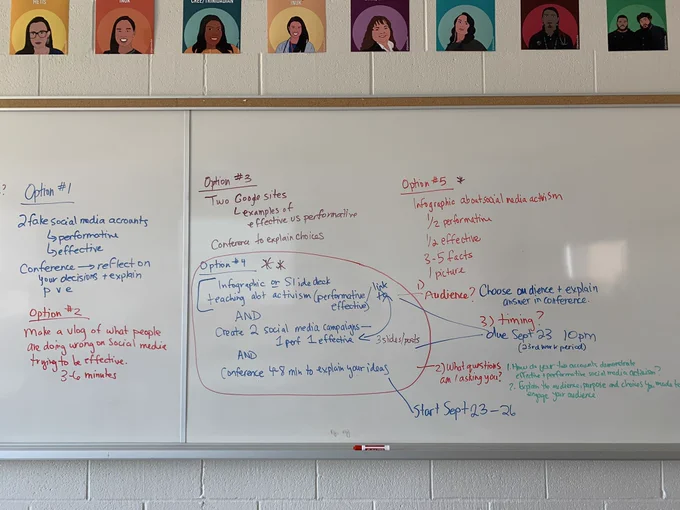 METIS
INUK
CREE/TRINIDADIAN
Option #1
2 fake social media accounts
↳ performative
↳ effective
Conference → reflect on
your decisions + explain
p v e
Option #2
Make a vlog of what people
are doing wrong on Social media
trying to be effective.
3-6 minutes
Option #3
Two Google sites
↳ examples of
effective vs performative
Conference to explain choices
Option #4 **
Infographic or Slide deck
teaching abt activism (performative
effective)
AND
Create 2 social media campaigns—
1 perf 1 effective
3 slides/posts
AND
Conference 4-8 min to explain your ideas
Option #5 *
Infographic about social media activism
1/2 performative
1/2 effective
3-5 facts
1 picture
1) Audience? Choose audience + explain
answer in conference.
3) timing?
due Sept 23 10pm
2) What questions
am I asking you?
1. How do your two accounts demonstrate
effective + performative social media activism?
2. Explain the audience, purpose and choices you made to
engage your audience
Start Sept 23-26